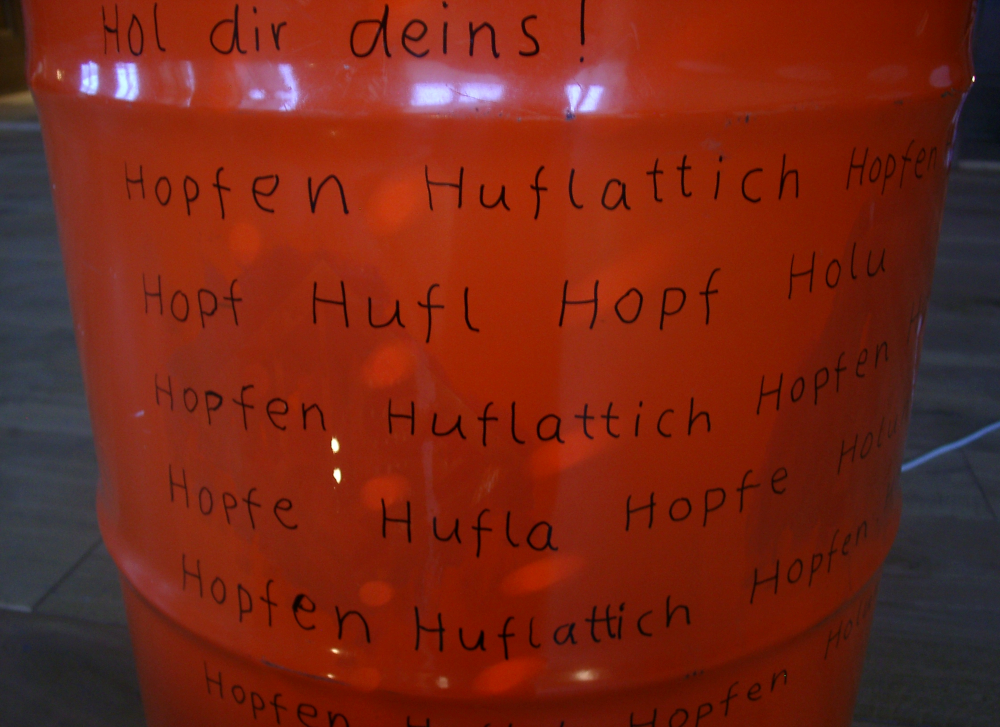 Hol dir deins!
Hopfen Huflattich Hopfen
Hopf Hufl Hopf Holu
Hopfen Huflattich Hopfen
Hopfe Hufla Hopfe Holu
Hopfen Huflattich Hopfen
Hopfen Hopfen